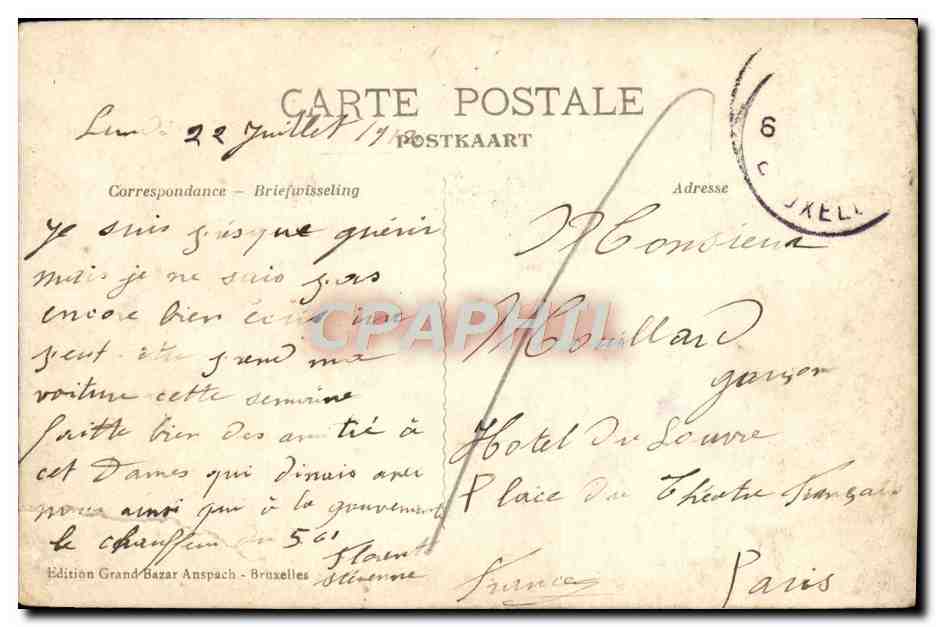 CARTE POSTALE
POSTKAART
Lundi 22 Juillet
Correspondance - Briefwisseling
Je suis presque guérir
mais je ne suis pas
encore bien
peut être prend ma
voiture cette semaine
faitte bien des amitié à
cet Dames qui dinais avec
nous ainsi que à la gouvernent
le chauffeur du 561
Florent
Edition Grand Bazar Anspach - Bruxelles
Adresse
Monsieur
Mouillard
garçon
Hotel du Louvre
Place du Théatre Français
Paris
France
6
UXELL
CPAPHIL